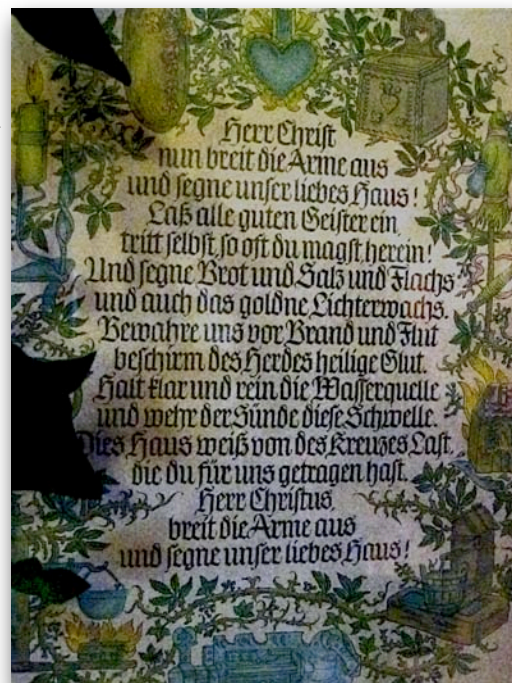 Herr Christ
nun breit die Arme aus
und segne unser liebes Haus!
Laß alle guten Geister ein,
tritt selbst, so oft du magst, herein!
Und segne Brot und Salz und Flachs
und auch das goldne Lichterwachs.
Bewahre uns vor Brand und Flut
beschirm des Herdes heilige Glut.
Halt klar und rein die Wasserquelle
und wehr der Sünde diese Schwelle.
Dies Haus weiß von des Kreuzes Last,
die du für uns getragen hast.
Herr Christus,
breit die Arme aus
und segne unser liebes Haus!